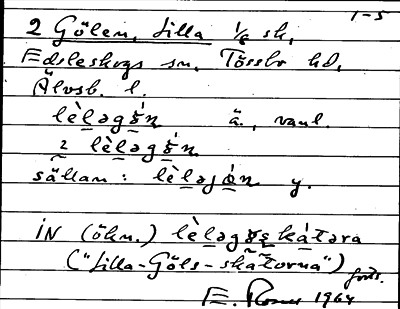 1-5
2 Gölen, Lilla 1/6 sk,
Edsleskogs sn. Tössbo hd,
Älvsb. l.
lèləgǿn ä., vanl.
2 lèləgǿn
sällan: lèləjǿn y.
IN (ökn.) lèləgøskátəra
("Lilla-Göls-skatorna")
forts.
1964